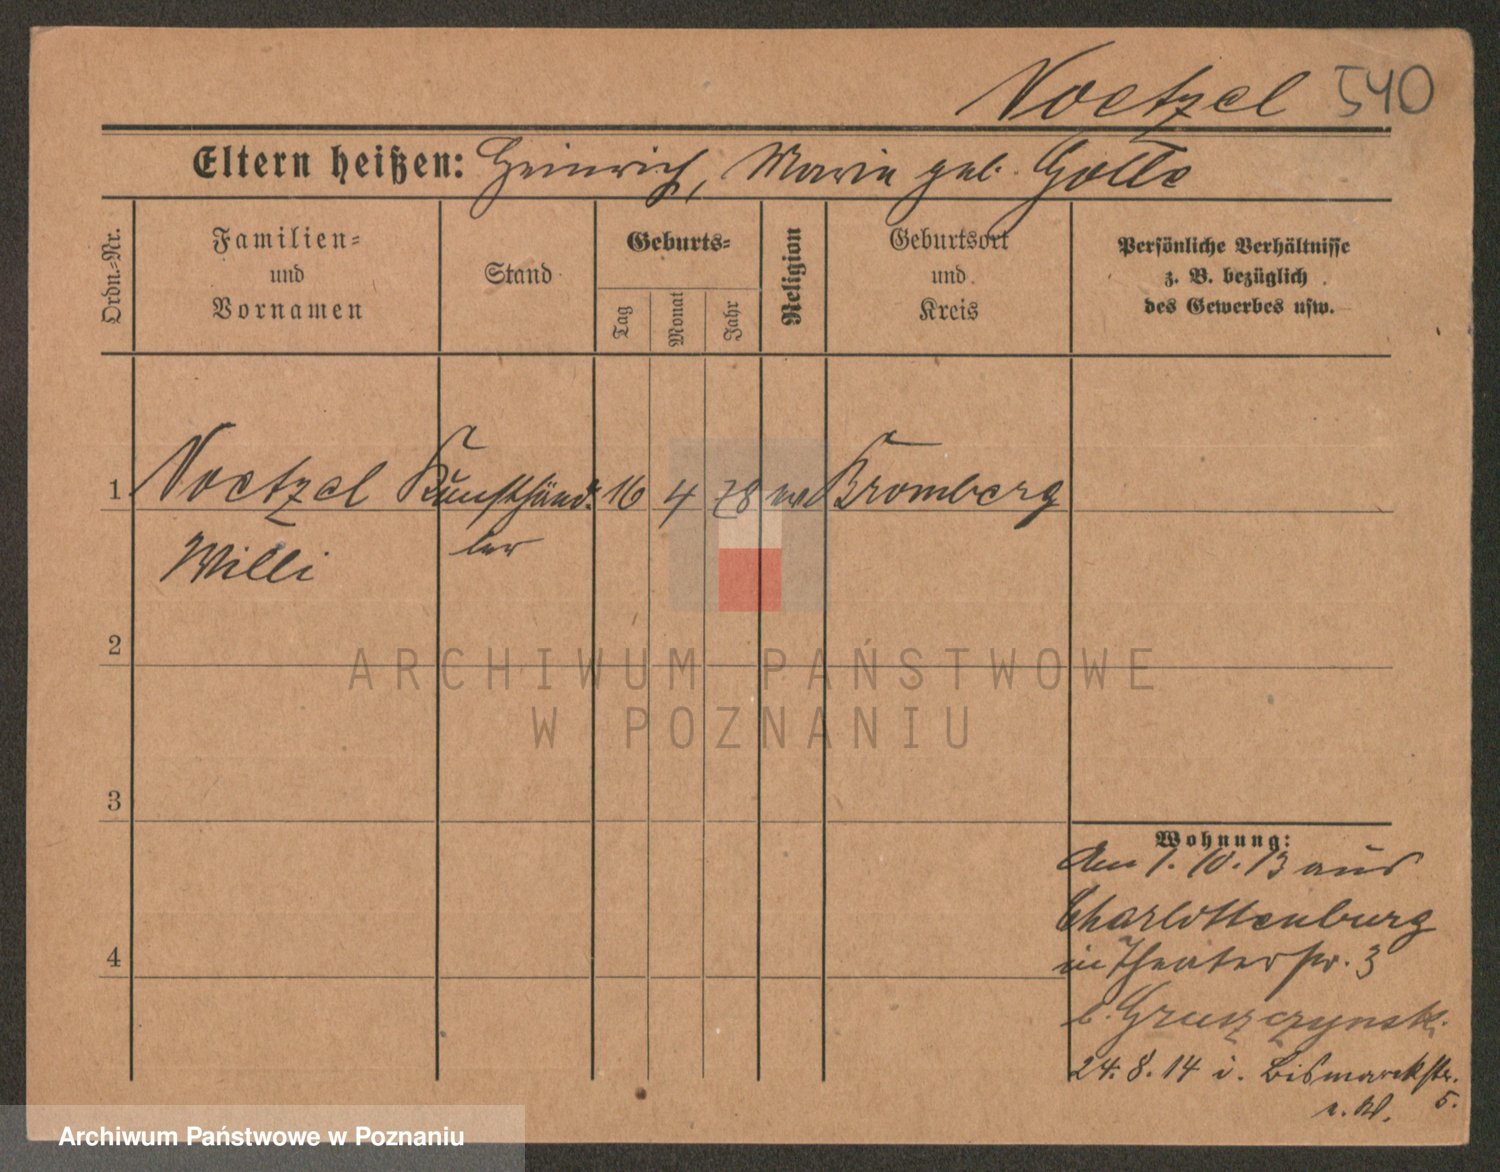 Noetzel 540
Eltern heißen: Heinrich, Marie geb. Golle
Ordn.-Nr.
Familien-
und
Vornamen
Stand
Geburts-
Tag
Monat
Jahr
Religion
Geburtsort
und
Kreis
Persönliche Verhältnisse
z. B. bezüglich
des Gewerbes usw.
1 Noetzel Kunsthänd- 16 4 78 ev Bromberg
Willi ler
2
3
4
Wohnung:
Am 1.10.13 aus
Charlottenburg
in Theaterstr. 3
b. Gruszczynski
24.8.14 i. Bismarckstr.
5.
ARCHIWUM PAŃSTWOWE
W POZNANIU
Archiwum Państwowe w Poznaniu